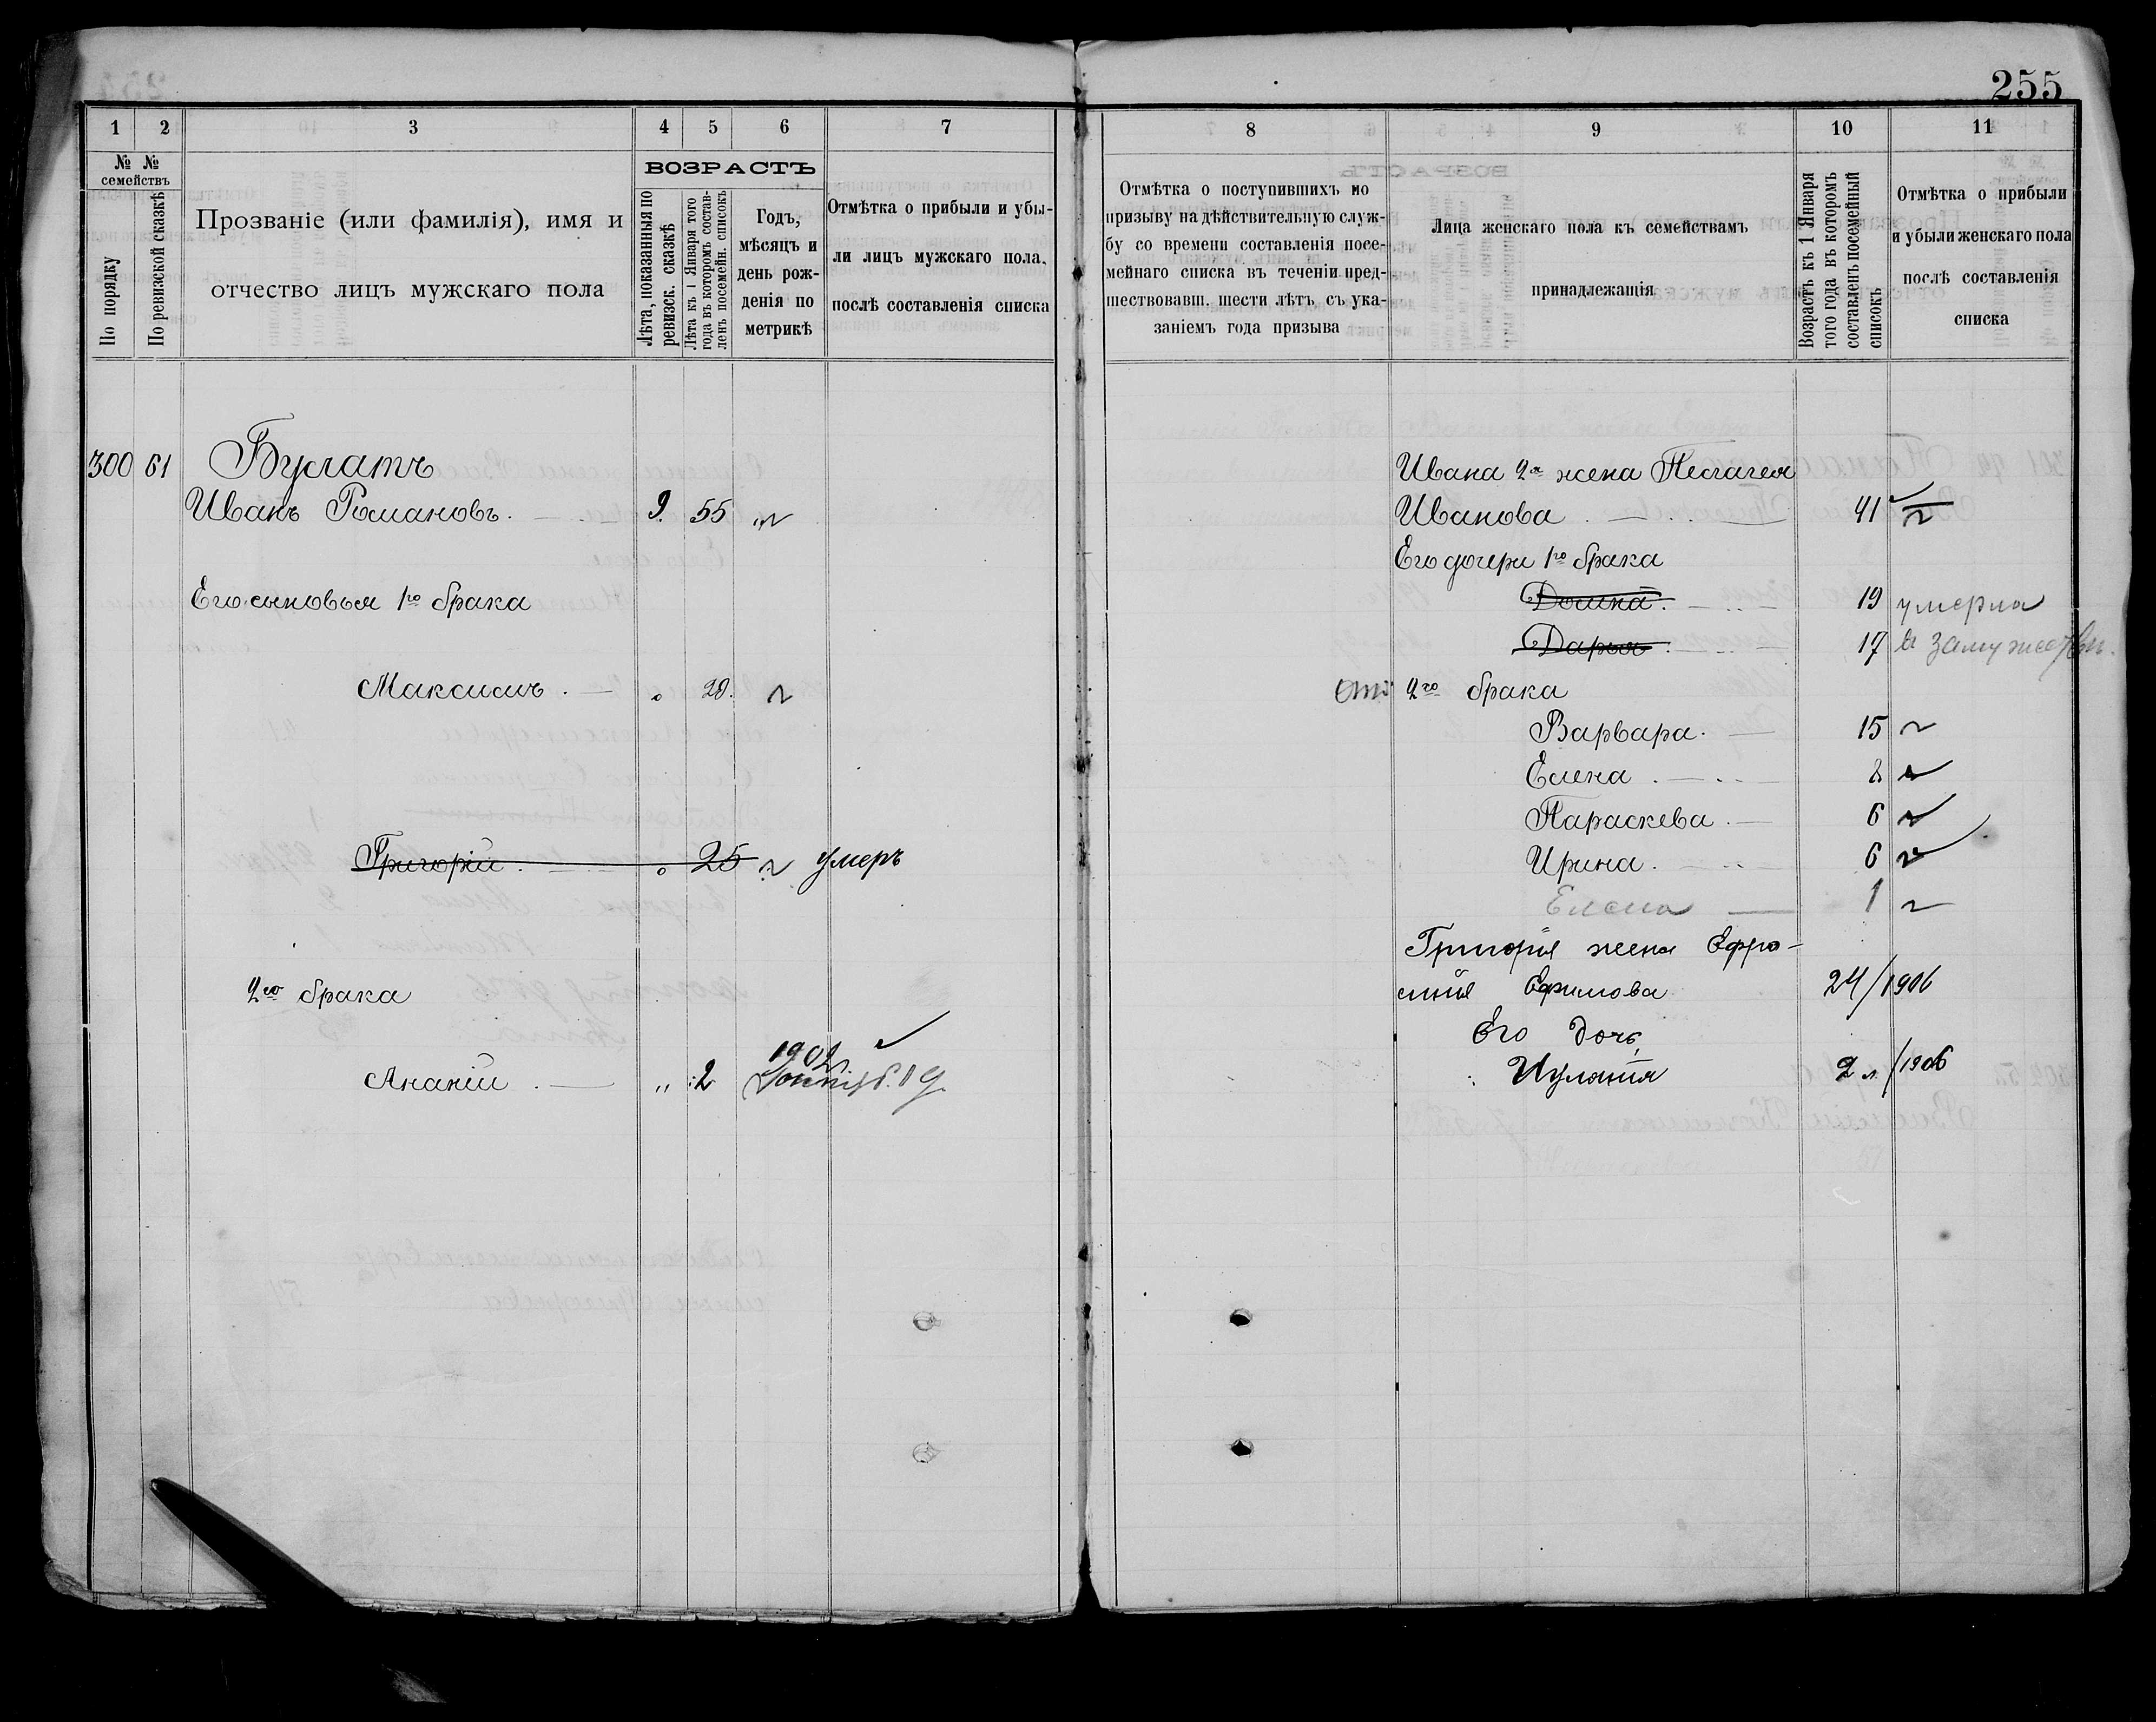 255
1 2 3 4 5 6 7
№ № семействъ
По порядку
По ревизской сказкѣ
Прозваніе (или фамилія), имя и
отчество лицъ мужскаго пола
ВОЗРАСТЪ
Лѣта, показанныя по
ревизск. сказкѣ
Лѣта къ 1 Января того
года въ которомъ состав-
ленъ посемейн. списокъ
Годъ,
мѣсяцъ и
день рож-
денія по
метрикѣ
Отмѣтка о прибыли и убы-
ли лицъ мужскаго пола,
послѣ составленія списка
300 61 Булатъ
Иванъ Романовъ. 9. 55
Его сыновья 1го брака
Максимъ. 20.
Григорій. 25 умеръ
2го брака
1902
Ананій. 2
8 9 10 11
Отмѣтка о поступившихъ по
призыву на дѣйствительную служ-
бу со времени составленія посе-
мейнаго списка въ теченіи пред-
шествовавш. шести лѣтъ съ ука-
заніемъ года призыва
Лица женскаго пола къ семействамъ
принадлежащія
Возрастъ къ 1 Января
того года въ которомъ
составленъ посемейный
списокъ
Отмѣтка о прибыли
и убыли женскаго пола
послѣ составленія
списка
Ивана 2я жена Пелагея
Иванова 41
Его дочери 1го брака
Домна. 19 умерла
Дарья. 17 въ замужеств.
отъ 2го брака
Варвара. 15
Елена. 8
Параскева. 6
Ирина. 6
Елена 1
Григорія жена Ефро-
синія Ефимова 24/1906
Его дочь
Иулянія 2 л./1906